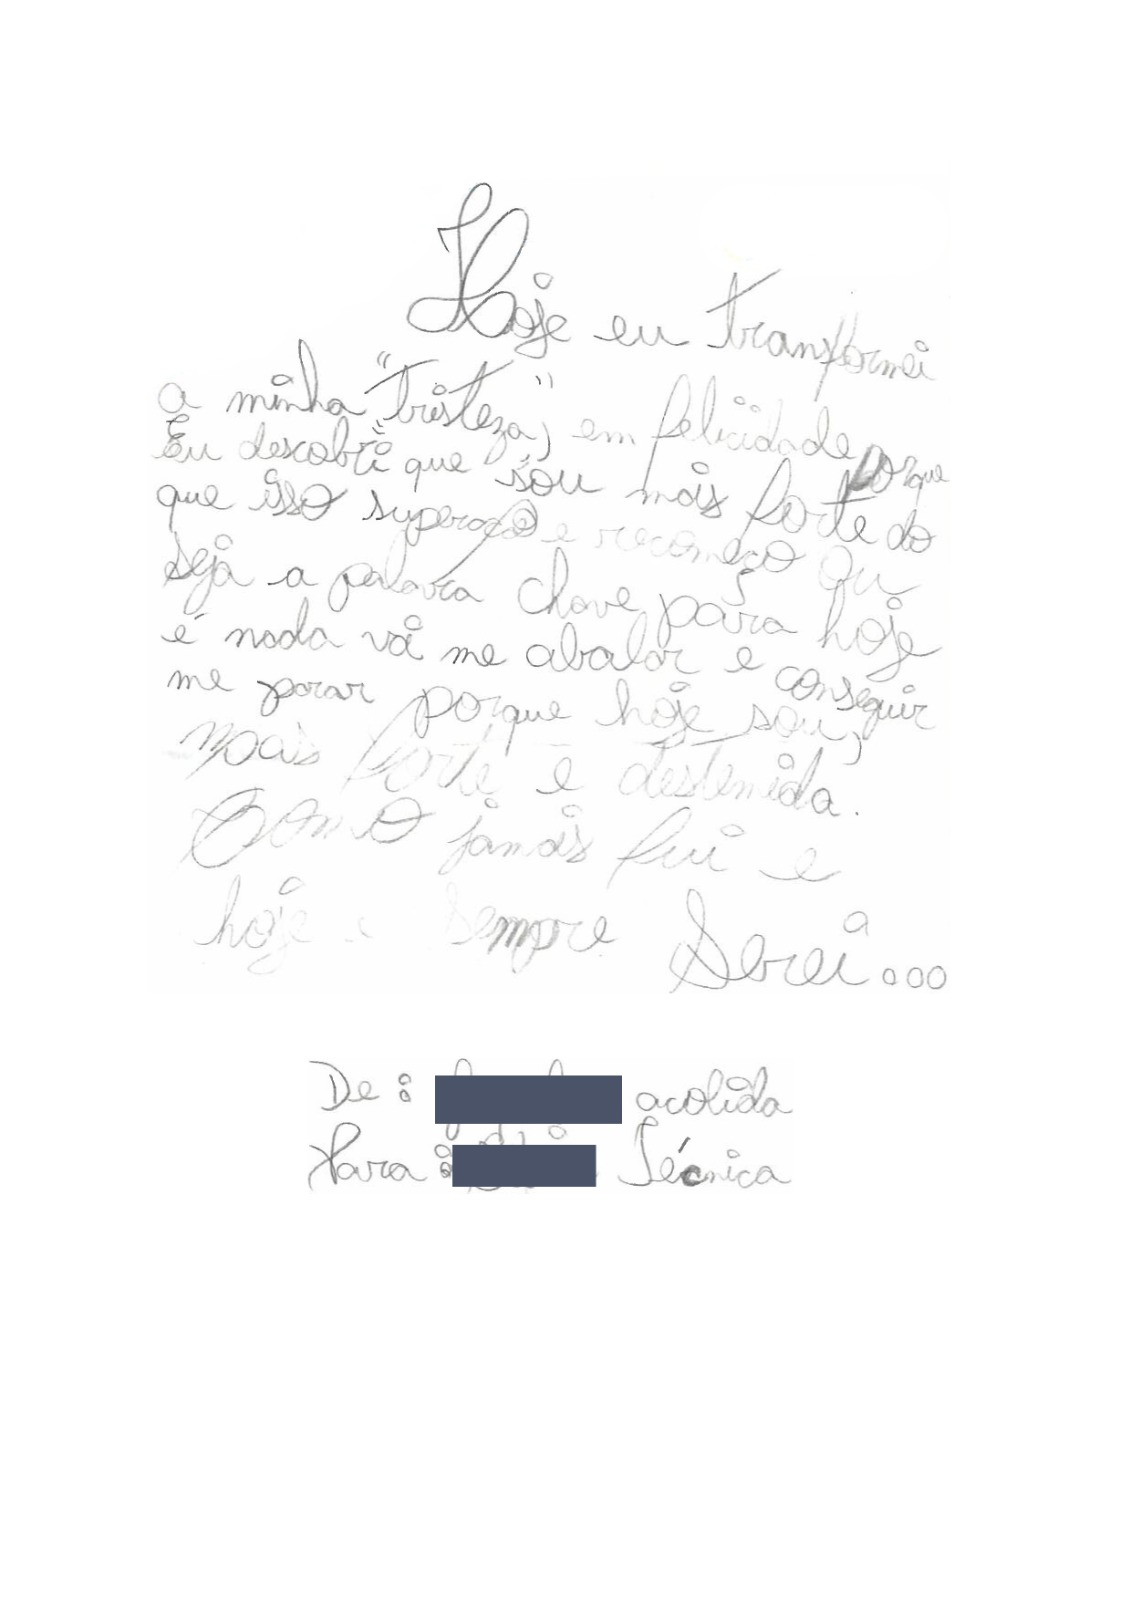 Hoje eu transformei
a minha "tristeza", em felicidade porque
Eu descobri que sou mais forte do
que isso superação e recomeço Qu
seja a palavra chave para hoje
e nada vai me abalar e conseguir
me parar porque hoje sou,
mais forte e destemida.
Como jamais fui e
hoje e sempre Serei...
De: acolida
Para: Técnica